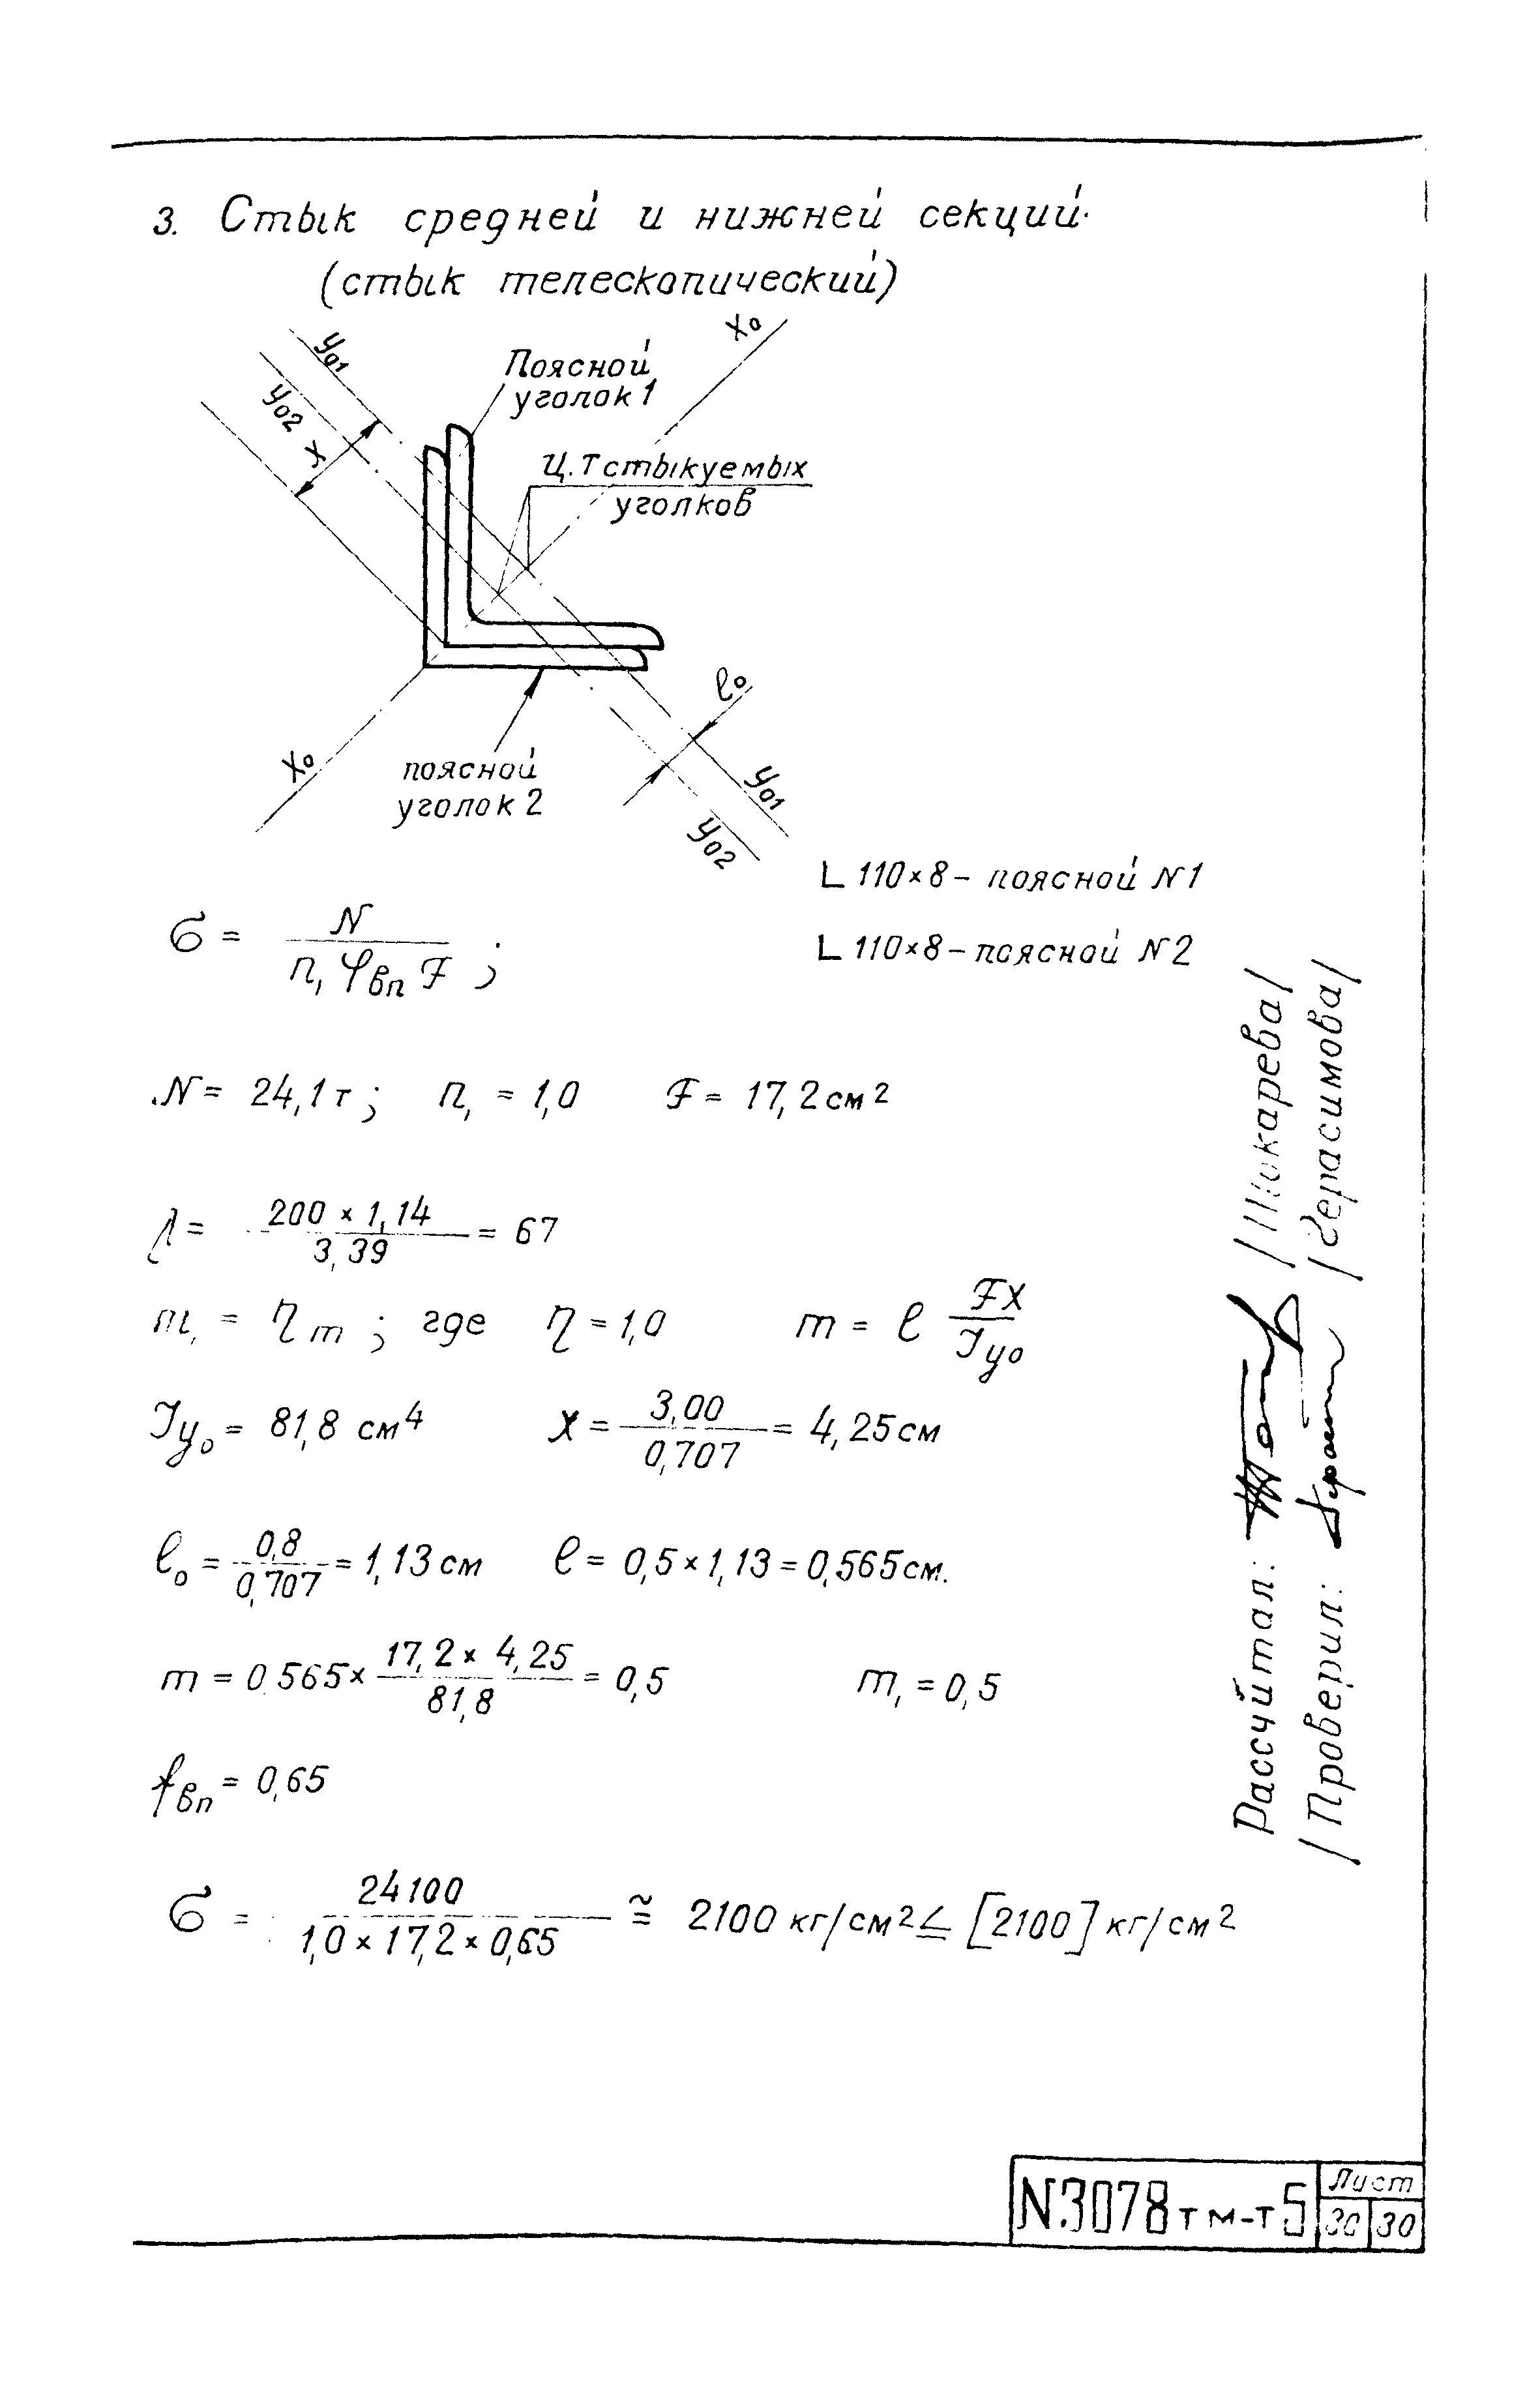 3. Стык средней и нижней секций.
(стык телескопический)
У01
X0
Поясной
уголок 1
У02
X
Ц.Т стыкуемых
уголков
ℓ0
X0
поясной
уголок 2
У01
У02
L 110×8 - поясной N1
L 110×8 - поясной N2
σ = N / (n₁ φвп F) ;
N = 24,1т ; n₁ = 1,0 F = 17,2 см²
λ = (200 × 1,14) / 3,39 = 67
m₁ = η m ; где η = 1,0 m = ℓ FX / Jу₀
Jу₀ = 81,8 см⁴ X = 3,00 / 0,707 = 4,25 см
ℓ₀ = 0,8 / 0,707 = 1,13 см ℓ = 0,5 × 1,13 = 0,565 см.
m = 0.565 × (17,2 × 4,25) / 81,8 = 0,5 m₁ = 0,5
φвп = 0,65
σ = 24100 / (1,0 × 17,2 × 0,65) ≅ 2100 кг/см² ≤ [2100] кг/см²
Рассчитал:
/Проверил: /Герасимова/
N3078тм-т5
Лист
30 30